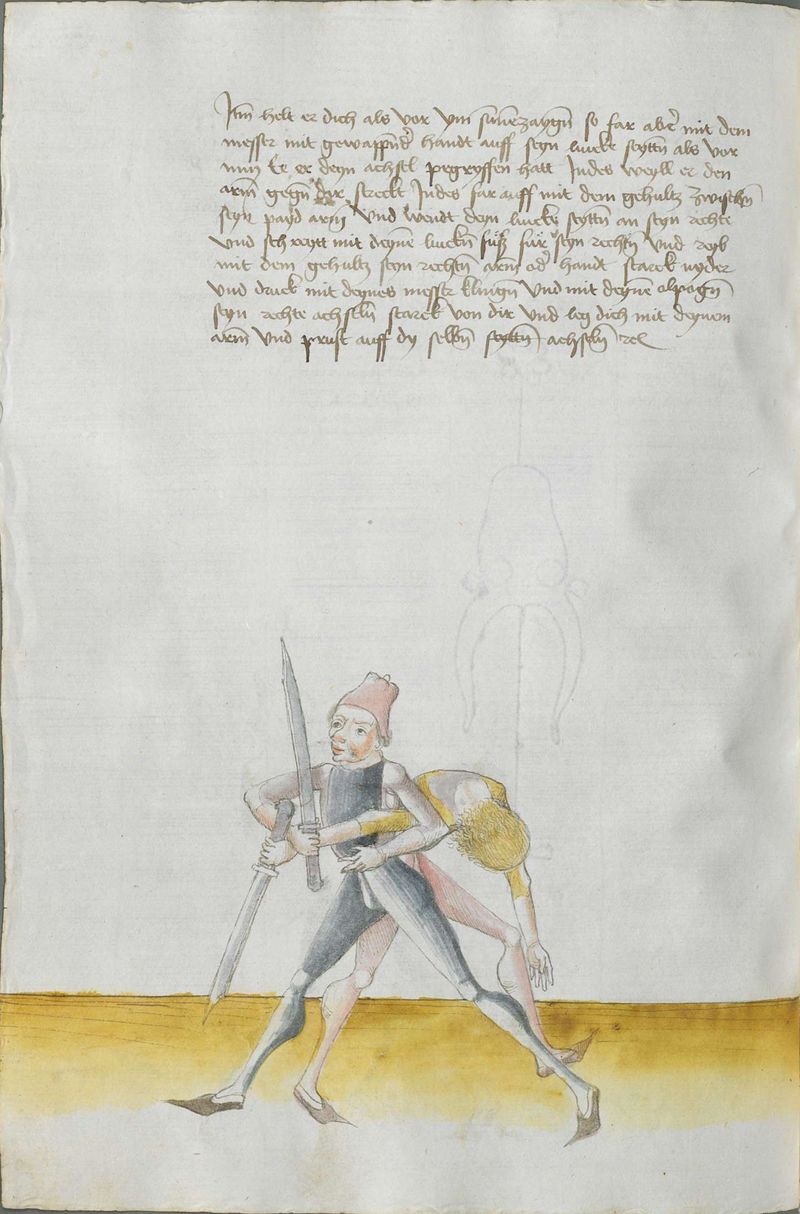 Itm helt er dich als vor ym sunenzaygn so far aber mit dem
messer mit gewappnder handt auff seyn lincke seyttn als vor
nun ee er deyn achsel pegryffen hatt Indes weyll er den
arm gegn dir streckt Indes far auff mit dem gehultz zwischn
seyn payd arm vnd wendt deyn lincke seyttn an seyn rechte
vnd schreytt mit deyne linckn fuß fur seyn rechtn vnd reyb
mit dem gehultz seyn rechtn arm oder handt starck nyder
vnd druck mit deynes messer klingn vnd mit deyne elpogn
seyn rechte achseln starck von dir vnd leg dich mit deynem
arm vnd prust auff dy selbn seyttn achseln